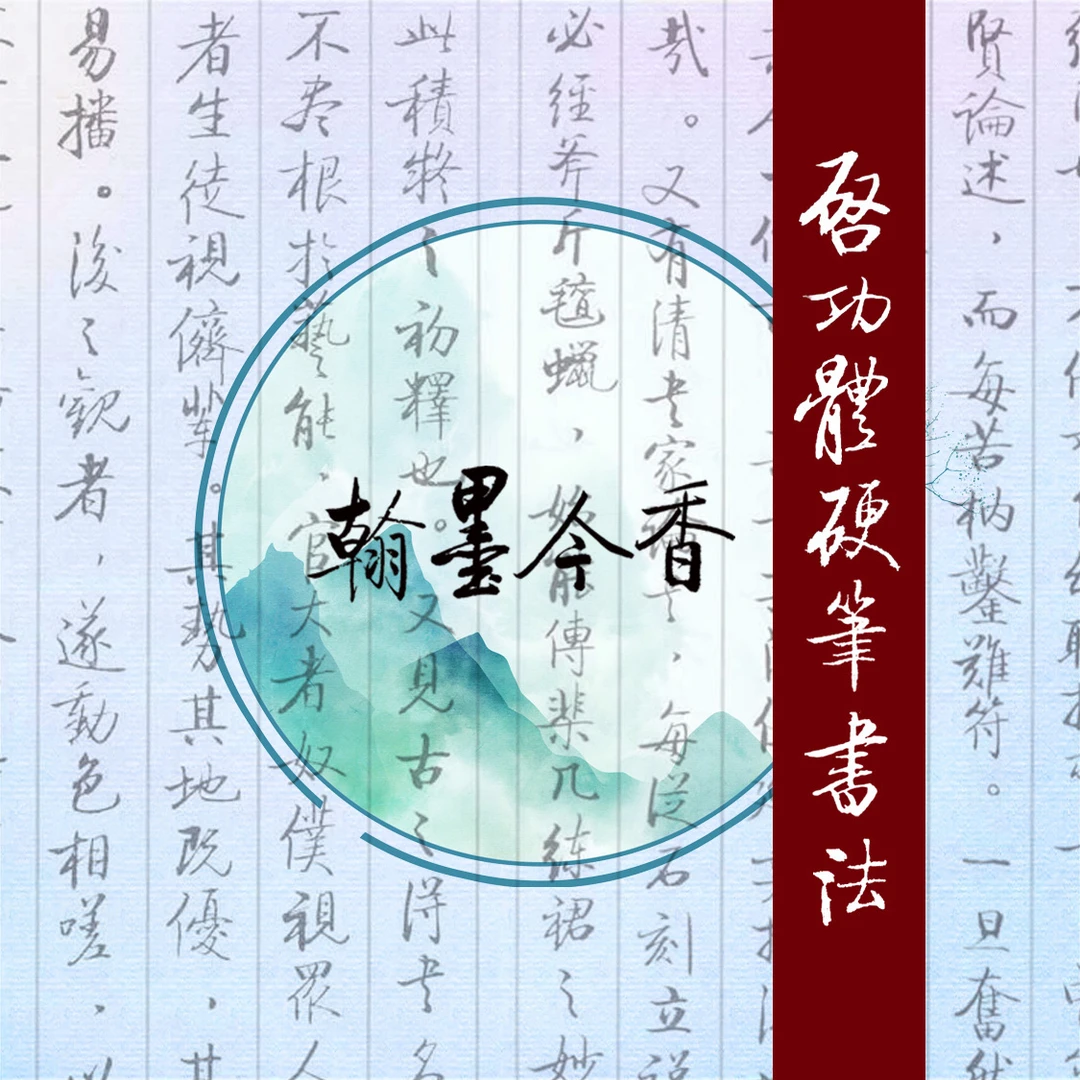 啓功體硬筆書法
翰墨今香
賢論述，而每苦枘鑿難符。一旦奮然
哉。又有清书家，每從石刻立説
必經斧斤氊蠟，始能傳棐几練裙之妙
此積疑之初釋也。又見古之得书名
不盡根於藝能，官大者奴僕視眾人
者生徒視儕輩。其勢其地既優，其
易播。後之觀者，遂動色相嗟，以